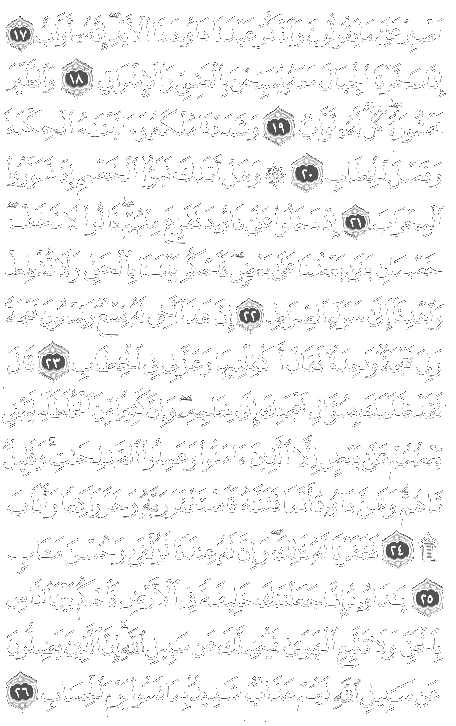 ٱصْبِرْ عَلَىٰ مَا يَقُولُونَ وَٱذْكُرْ عَبْدَنَا دَاوُۥدَ ذَا ٱلْأَيْدِ ۖ إِنَّهُۥٓ أَوَّابٌ ١٧
إِنَّا سَخَّرْنَا ٱلْجِبَالَ مَعَهُۥ يُسَبِّحْنَ بِٱلْعَشِىِّ وَٱلْإِشْرَاقِ ١٨ وَٱلطَّيْرَ
مَحْشُورَةً ۖ كُلٌّ لَّهُۥٓ أَوَّابٌ ١٩ وَشَدَدْنَا مُلْكَهُۥ وَءَاتَيْنَٰهُ ٱلْحِكْمَةَ
وَفَصْلَ ٱلْخِطَابِ ٢٠ ۞ وَهَلْ أَتَىٰكَ نَبَؤُا۟ ٱلْخَصْمِ إِذْ تَسَوَّرُوا۟
ٱلْمِحْرَابَ ٢١ إِذْ دَخَلُوا۟ عَلَىٰ دَاوُۥدَ فَفَزِعَ مِنْهُمْ ۖ قَالُوا۟ لَا تَخَفْ ۖ
خَصْمَانِ بَغَىٰ بَعْضُنَا عَلَىٰ بَعْضٍ فَٱحْكُم بَيْنَنَا بِٱلْحَقِّ وَلَا تُشْطِطْ
وَٱهْدِنَآ إِلَىٰ سَوَآءِ ٱلصِّرَٰطِ ٢٢ إِنَّ هَٰذَآ أَخِى لَهُۥ تِسْعٌ وَتِسْعُونَ نَعْجَةً
وَلِىَ نَعْجَةٌ وَٰحِدَةٌ فَقَالَ أَكْفِلْنِيهَا وَعَزَّنِى فِى ٱلْخِطَابِ ٢٣ قَالَ
لَقَدْ ظَلَمَكَ بِسُؤَالِ نَعْجَتِكَ إِلَىٰ نِعَاجِهِۦ ۖ وَإِنَّ كَثِيرًا مِّنَ ٱلْخُلَطَآءِ لَيَبْغِى
بَعْضُهُمْ عَلَىٰ بَعْضٍ إِلَّا ٱلَّذِينَ ءَامَنُوا۟ وَعَمِلُوا۟ ٱلصَّٰلِحَٰتِ وَقَلِيلٌ
مَّا هُمْ ۗ وَظَنَّ دَاوُۥدُ أَنَّمَا فَتَنَّٰهُ فَٱسْتَغْفَرَ رَبَّهُۥ وَخَرَّ رَاكِعًا وَأَنَابَ
۩ ٢٤ فَغَفَرْنَا لَهُۥ ذَٰلِكَ ۖ وَإِنَّ لَهُۥ عِندَنَا لَزُلْفَىٰ وَحُسْنَ مَـَٔابٍ
٢٥ يَٰدَاوُۥدُ إِنَّا جَعَلْنَٰكَ خَلِيفَةً فِى ٱلْأَرْضِ فَٱحْكُم بَيْنَ ٱلنَّاسِ
بِٱلْحَقِّ وَلَا تَتَّبِعِ ٱلْهَوَىٰ فَيُضِلَّكَ عَن سَبِيلِ ٱللَّهِ ۚ إِنَّ ٱلَّذِينَ يَضِلُّونَ
عَن سَبِيلِ ٱللَّهِ لَهُمْ عَذَابٌ شَدِيدٌۢ بِمَا نَسُوا۟ يَوْمَ ٱلْحِسَابِ ٢٦